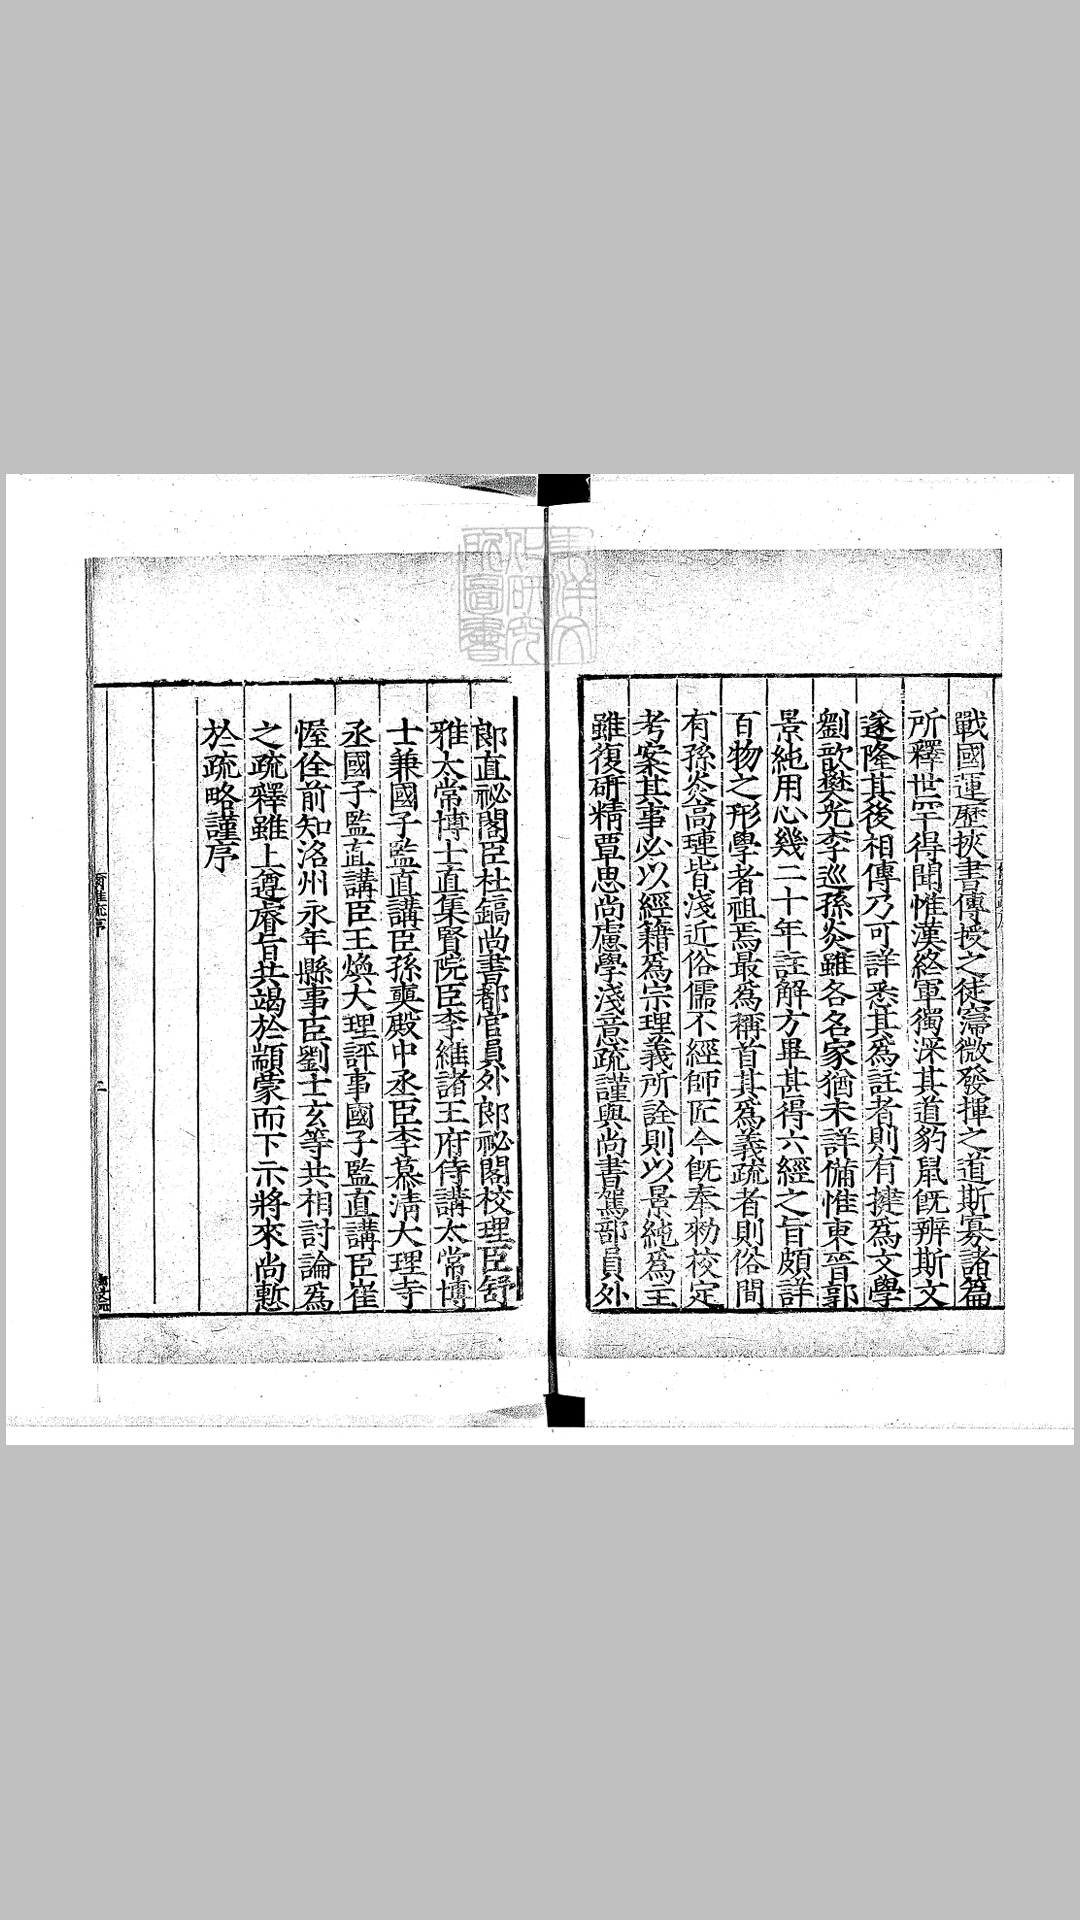 戰國運歷挾書傳授之徒寖微發揮之道斯寡諸篇
所釋世罕得聞惟漢終軍獨深其道豹鼠旣辨斯文
遂隆其後相傳乃可詳悉其爲註者則有犍爲文學
劉歆樊光李巡孫炎雖各名家猶未詳備惟東晉郭
景純用心幾二十年註解方畢甚得六經之旨頗詳
百物之形學者祖焉最爲稱首其爲義疏者則俗間
有孫炎高璉皆淺近俗儒不經師匠今旣奉勑校定
考案其事必以經籍爲宗理義所詮則以景純爲主
雖復硏精覃思尚慮學淺意疏謹與尚書駕部員外
郞直祕閣臣杜鎬尚書都官員外郞祕閣校理臣舒
雅太常博士直集賢院臣李維諸王府侍講太常博
士兼國子監直講臣孫奭殿中丞臣李慕淸大理寺
丞國子監直講臣王煥大理評事國子監直講臣崔
偓佺前知洛州永年縣事臣劉士玄等共相討論爲
之疏釋雖上遵睿旨共竭於顓蒙而下示將來尚慙
於疏略謹序
爾雅疏序
二